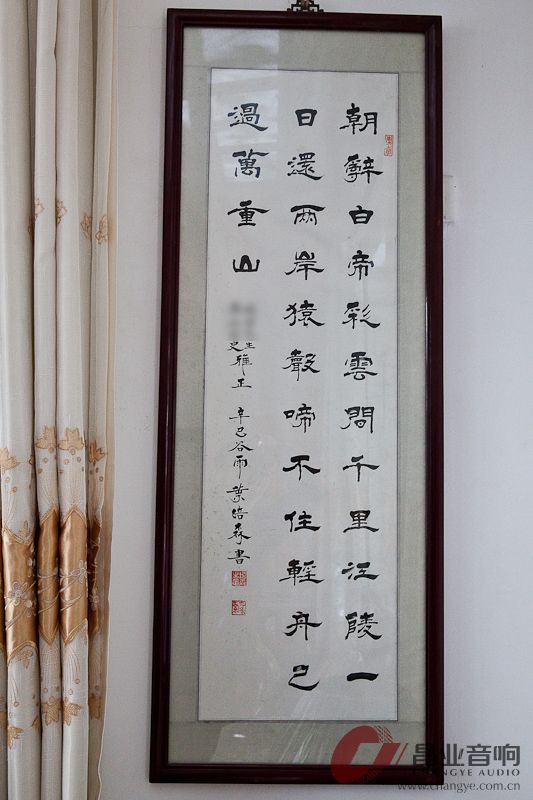 朝辭白帝彩雲間千里江陵一
日還兩岸猿聲啼不住輕舟已
過萬重山
生
史雅正 辛巳谷雨葉培森書
昌业音响
CHANGYE AUDIO
www.changye.com.cn